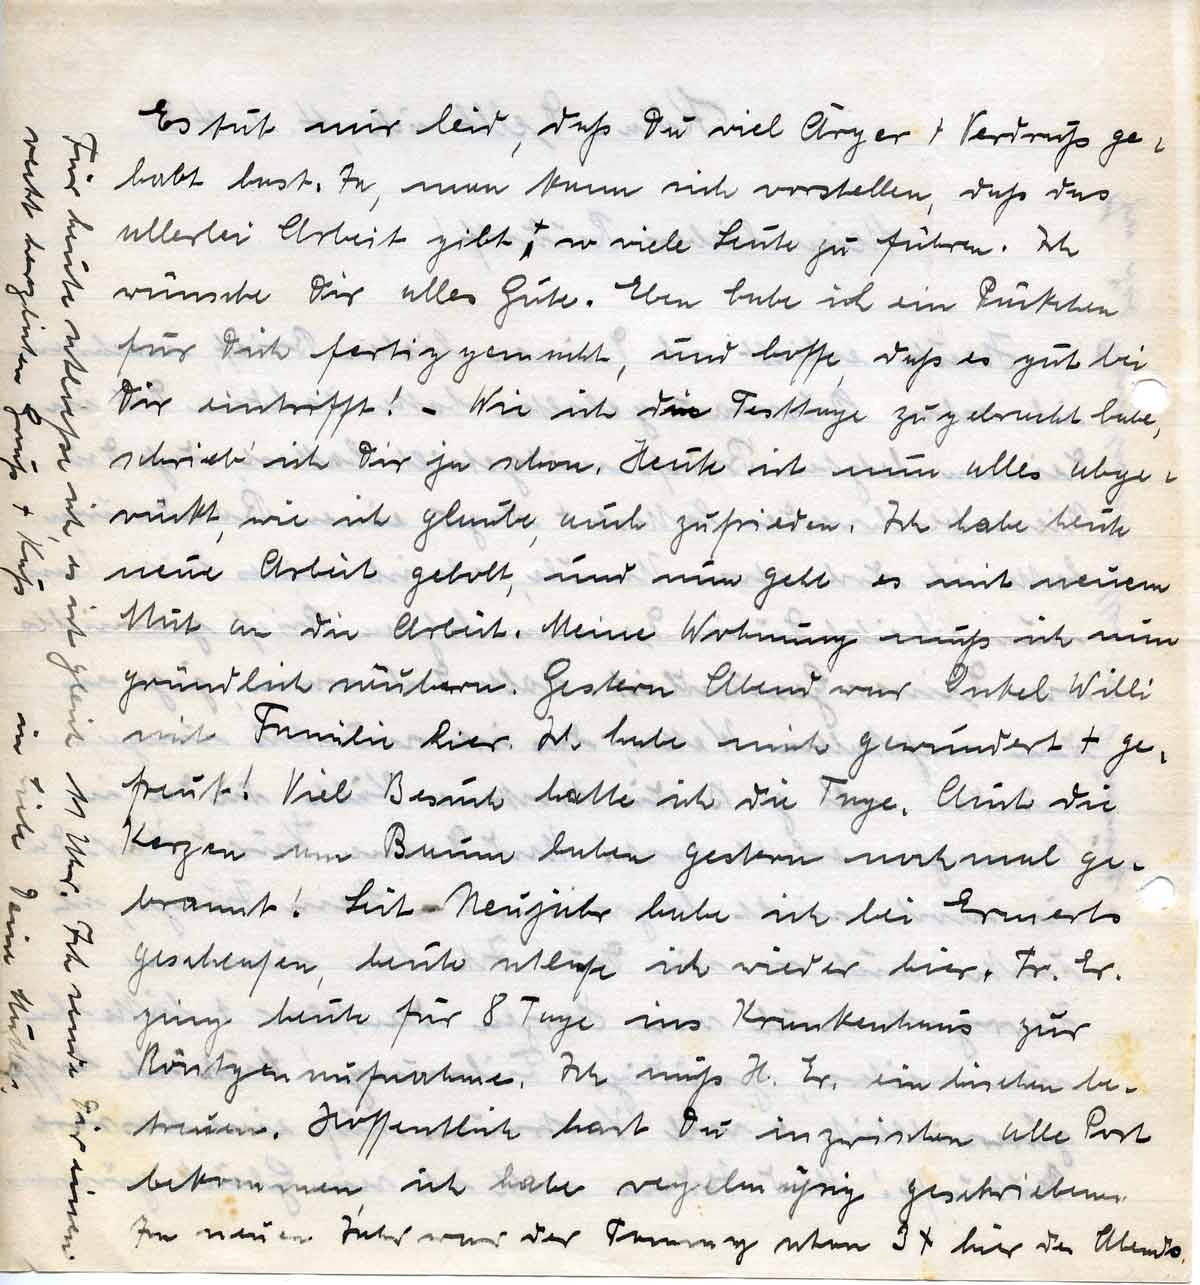 Es tut mir leid, daß Du viel Ärger + Verdruß ge-
habt hast. Ja, man kann sich vorstellen, daß das
allerlei Arbeit gibt, + so viele Leute zu führen. Ich
wünsche Dir alles Gute. Eben habe ich ein Päckchen
für Dich fertig gemacht, und hoffe, daß es gut bei
Dir eintrifft! - Wie ich die Festtage zugebracht habe,
schrieb ich Dir ja schon. Heute ist nun alles abge-
rückt, wie ich glaube, auch zufrieden. Ich habe heute
neue Arbeit geholt, und nun geht es mit neuem
Mut an die Arbeit. Meine Wohnung muß ich nun
gründlich säubern. Gestern Abend war Onkel Willi
mit Familie hier. Ich habe mich gewundert + ge-
freut! Viel Besuch hatte ich die Tage. Auch die
Kerzen am Baum haben gestern nochmal ge-
brannt! Seit Neujahr habe ich bei Ermerts
geschlafen, heute schlafe ich wieder hier. Fr. Er.
ging heute für 8 Tage ins Krankenhaus zur
Röntgenaufnahme. Ich muß H. Er. ein bischen be-
treuen. Hoffentlich hast Du inzwischen alle Post
bekommen ich habe regelmäßig geschrieben
Im neuen Jahr war der Tommy schon 3 x hier des Abends.
Für heute schließe ich, es ist gleich 11 Uhr. Ich sende Dir einen
recht herzlichen Gruß + Kuß in Liebe Deine Mutter.